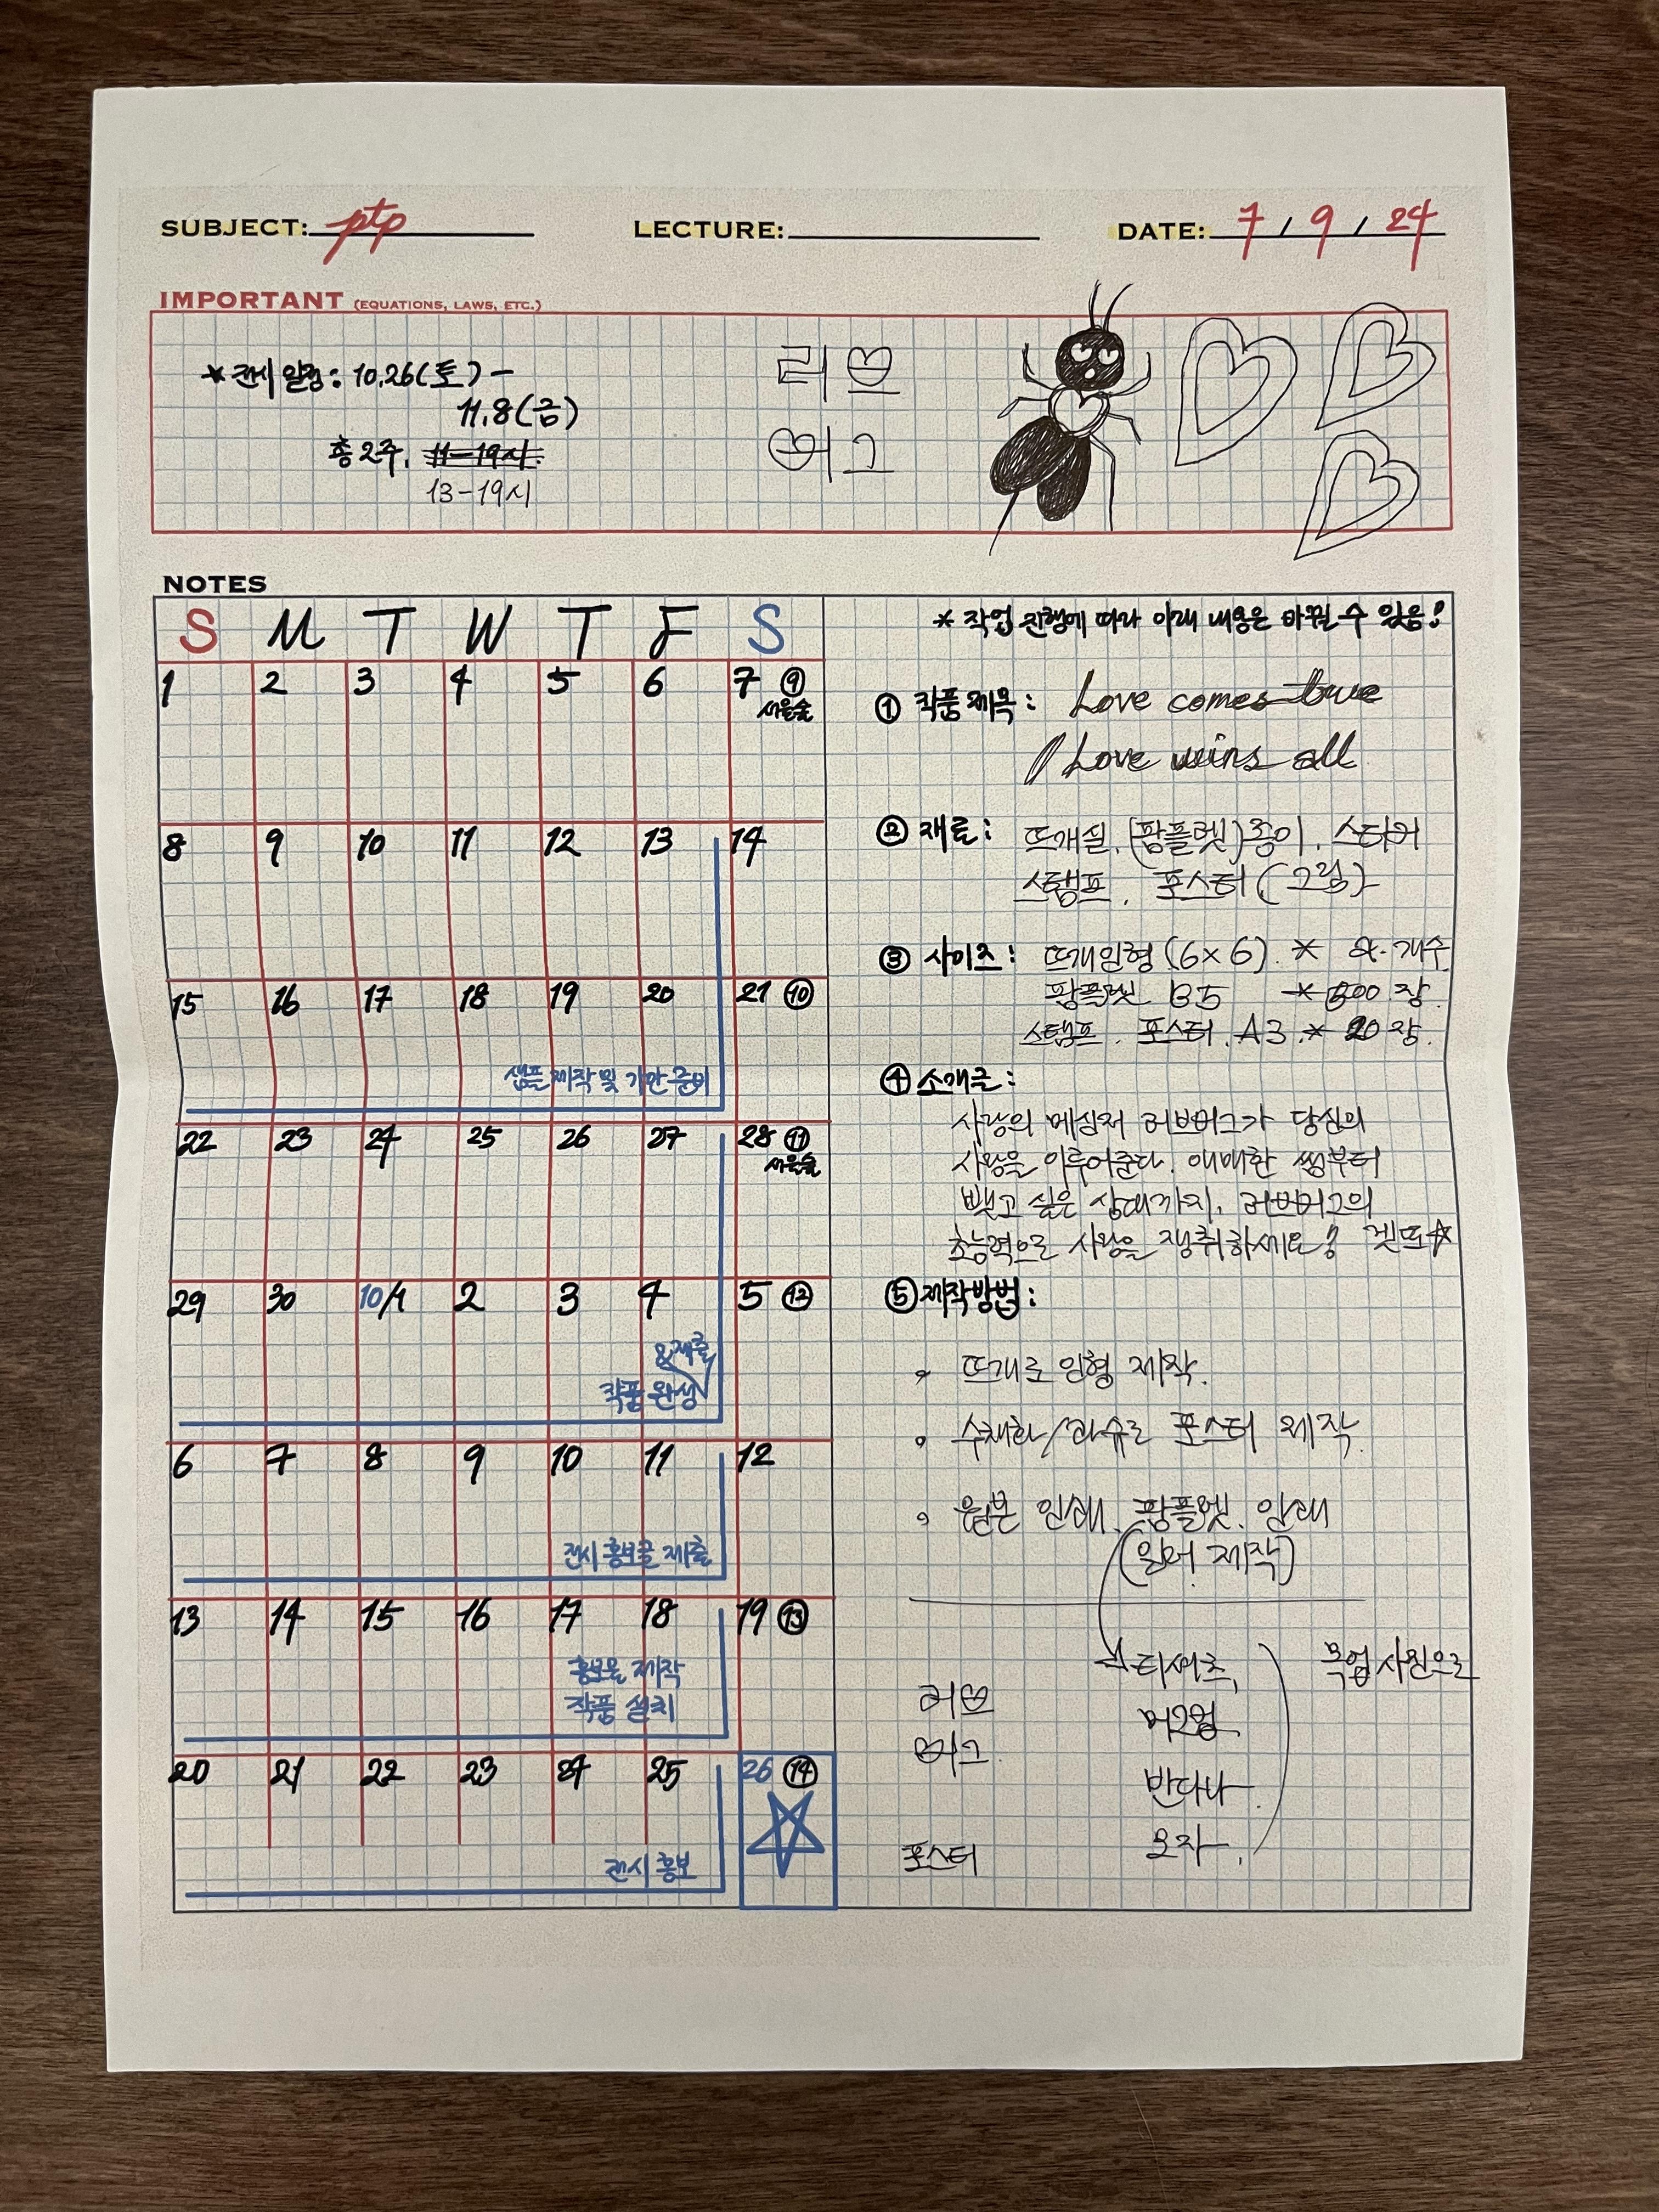 SUBJECT: ptp LECTURE: DATE: 7/9/24
IMPORTANT (EQUATIONS, LAWS, ETC.)
* 전시 일정: 10.26(토) -
11.8(금)
총 2주. 11-19시.
13-19시
러브
버그
NOTES
S M T W T F S
1 2 3 4 5 6 7 ⑨
서울숲
8 9 10 11 12 13 14
15 16 17 18 19 20 21 ⑩
샘플 제작 및 기안 준비
22 23 24 25 26 27 28 ⑪
서울숲
29 30 10/1 2 3 4 5 ⑫
&제출
작품 완성
6 7 8 9 10 11 12
전시 홍보글 제출
13 14 15 16 17 18 19 ⑬
홍보물 제작
작품 설치
20 21 22 23 24 25 26 ⑭
전시 홍보
* 작업 진행에 따라 아래 내용은 바뀔 수 있음!
① 작품 제목: Love comes true
/ Love wins all
② 재료: 뜨개실, (팜플렛) 종이, 스티커
스탬프, 포스터 (그림)
③ 사이즈: 뜨개인형 (6×6) * 개수
팜플렛 B5 * 500장.
스탬프. 포스터. A3. * 20장.
④ 소개글:
사랑의 메신저 러브버그가 당신의
사랑을 이루어준다. 애매한 썸부터
뺏고 싶은 상대까지. 러브버그의
초능력으로 사랑을 쟁취하세요! 겟또☆
⑤ 제작방법:
• 뜨개로 인형 제작.
• 수채화/과슈로 포스터 제작.
• 원본 인쇄. 팜플렛. 인쇄
제작)
티셔츠, 목업 사진으로
러브
머그컵
버그.
반다나.
모자.
포스터